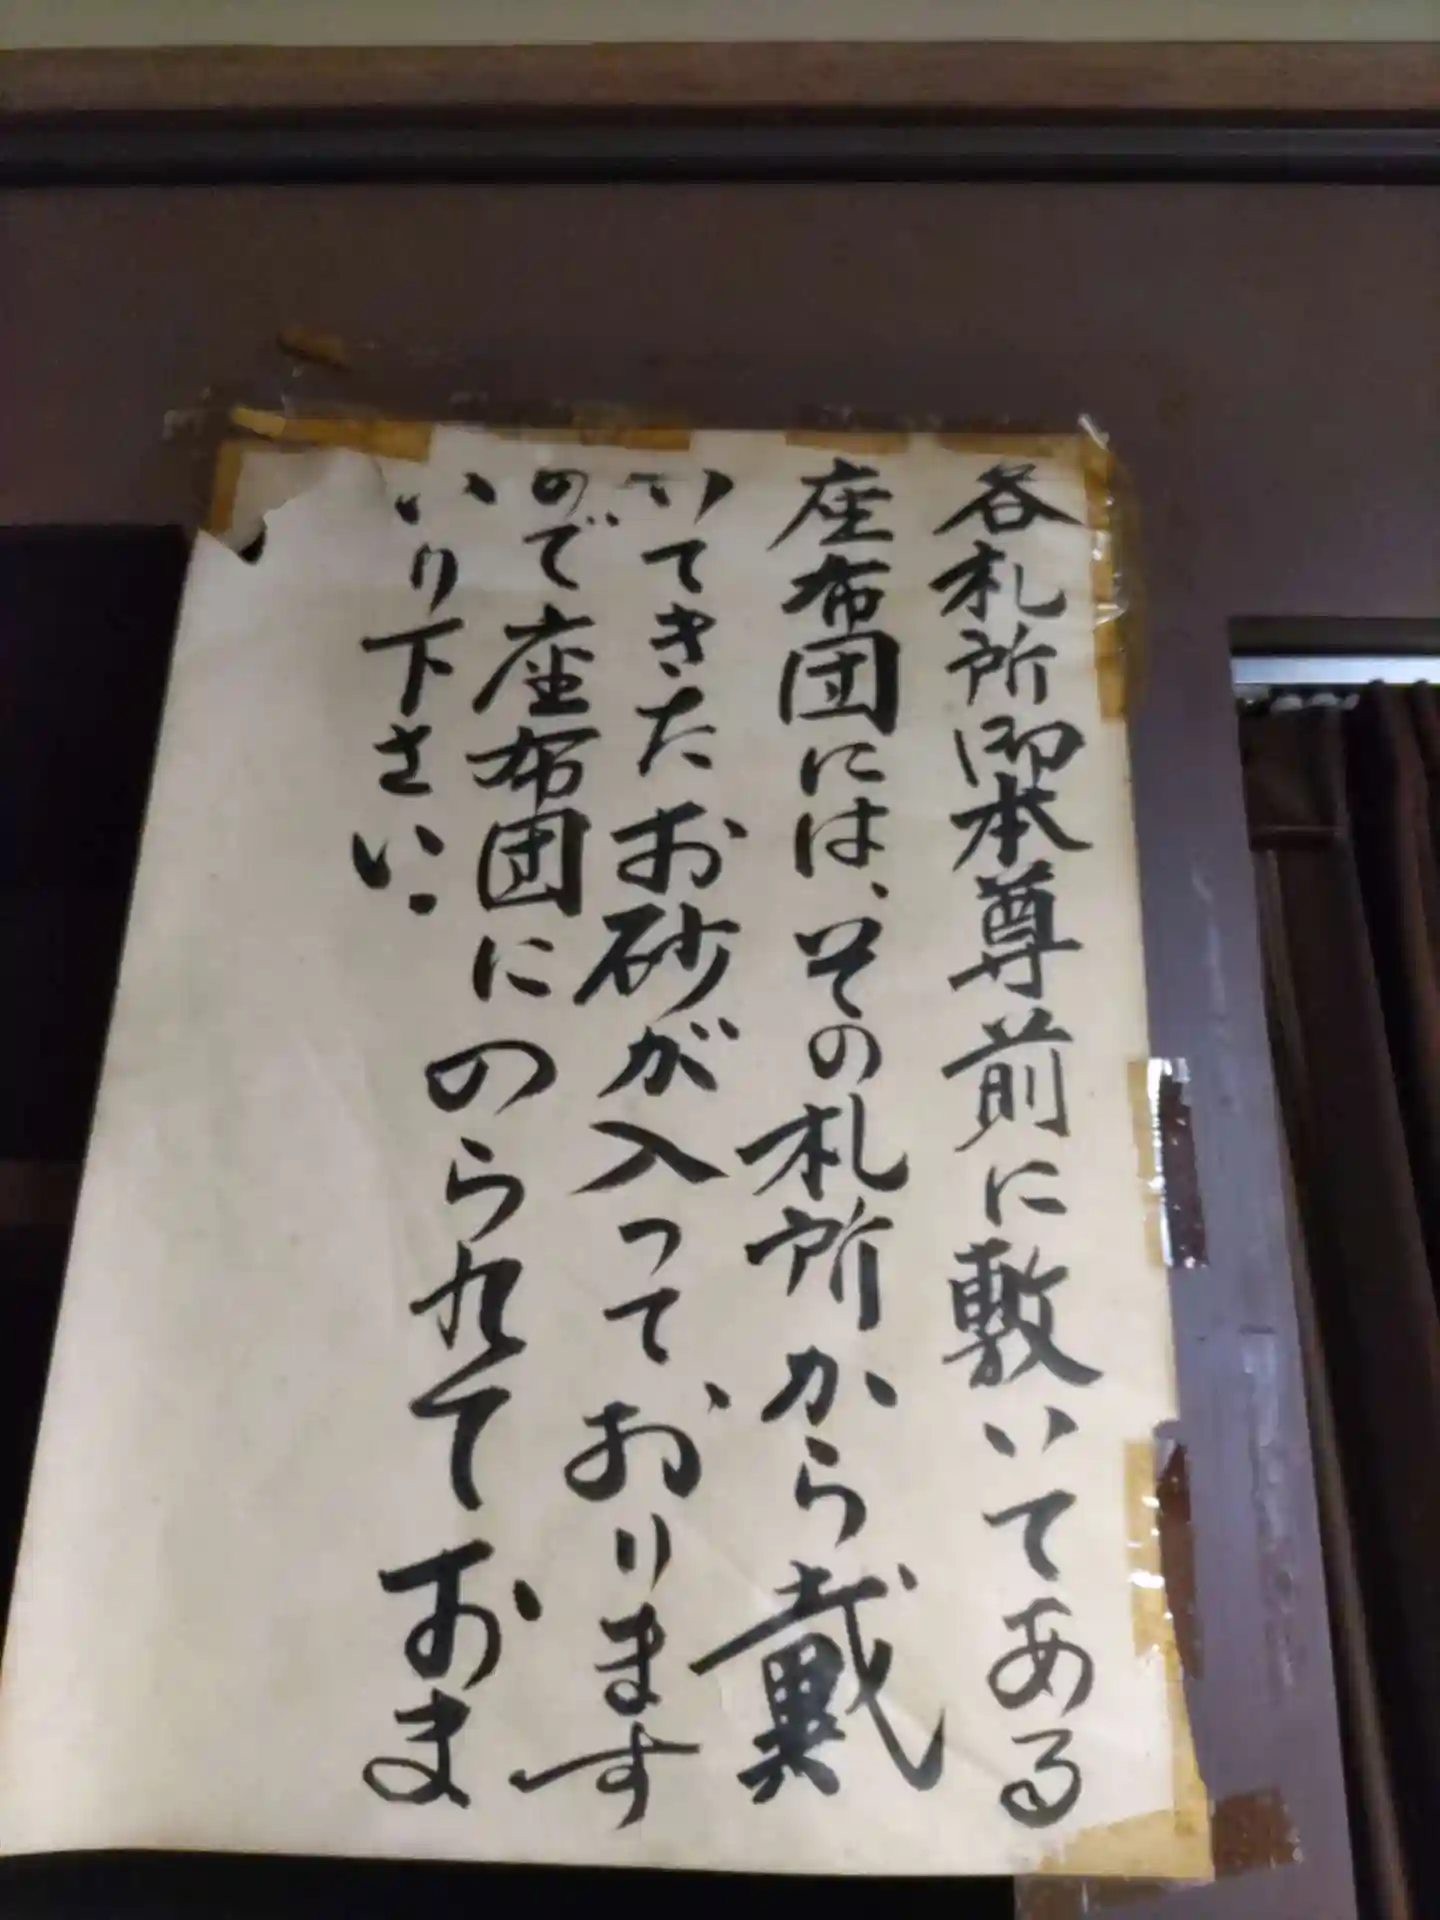 各札所御本尊前に敷いてある
座布団には、その札所から戴
いてきたお砂が入って、おります
ので座布団にのられておま
いり下さい.